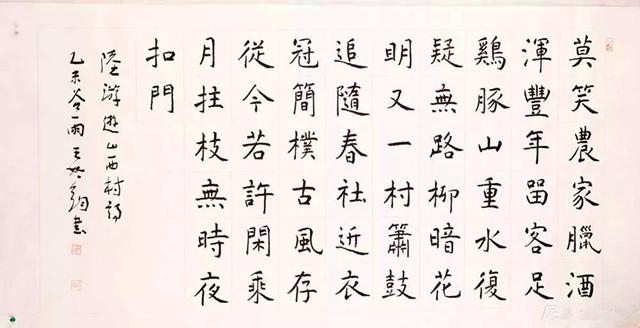 莫笑農家臘酒
渾豐年留客足
鷄豚山重水復
疑無路柳暗花
明又一村簫鼓
追隨春社近衣
冠簡樸古風存
從今若許閑乘
月拄枝無時夜
扣門
陸游遊山西村詩
乙未谷雨王
書